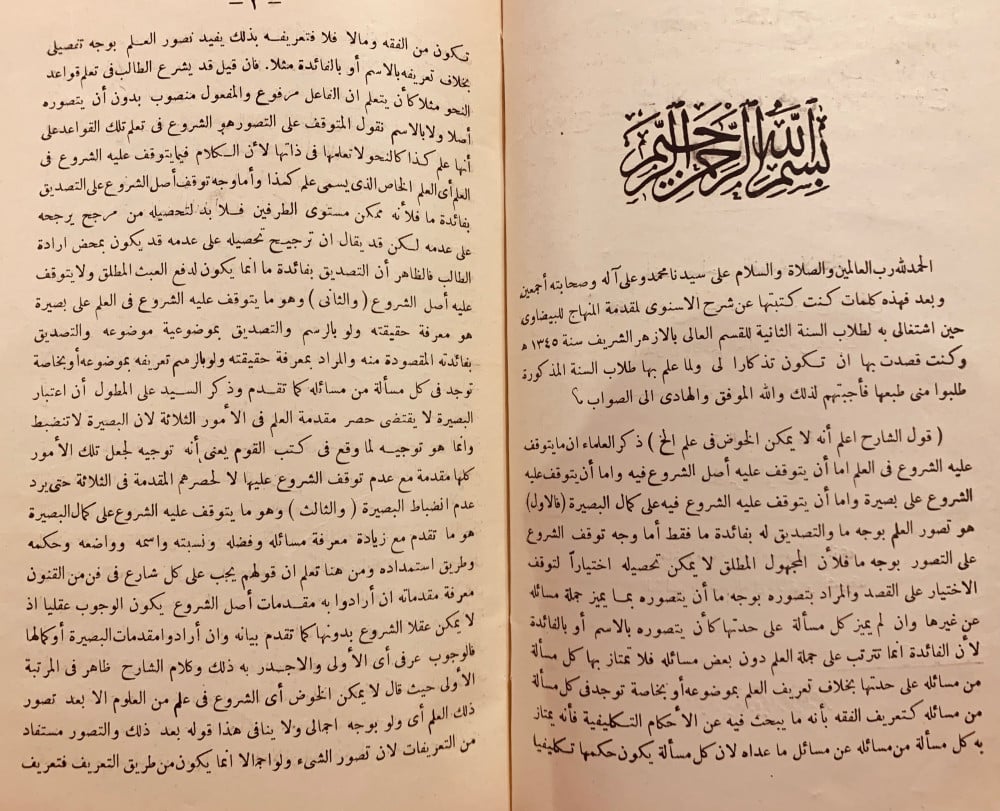 بسم الله الرحمن الرحيم
الحمد لله رب العالمين والصلاة والسلام على سيدنا محمد وعلى آله وصحابته أجمعين
وبعد فهذه كلمات كنت كتبتها عن شرح الاسنوى لمقدمة المنهاج للبيضاوى
حين اشتغالى به لطلاب السنة الثانية للقسم العالى بالازهر الشريف سنة ١٣٤٥ ه
وكنت قصدت بها ان تكون تذكارا لى ولما علم بها طلاب السنة المذكورة
طلبوا منى طبعها فأجبتهم لذلك والله الموفق والهادى الى الصواب
( قول الشارح اعلم أنه لا يمكن الخوض فى علم الخ ) ذكر العلماء ان ما يتوقف
عليه الشروع فى العلم اما أن يتوقف عليه أصل الشروع فيه واما أن يتوقف عليه
الشروع على بصيرة واما أن يتوقف عليه الشروع فيه على كمال البصيرة (فالاول)
هو تصور العلم بوجه ما والتصديق له بفائدة ما فقط أما وجه توقف الشروع
على التصور بوجه ما فلأن المجهول المطلق لا يمكن تحصيله اختياراً لتوقف
الاختيار على القصد والمراد بتصوره بوجه ما أن يتصوره بما يميز جملة مسائله
عن غيرها وان لم يميز كل مسألة على حدتها كأن يتصوره بالاسم أو بالفائدة
لأن الفائدة انما تترتب على جملة العلم دون بعض مسائله فلا تمتاز بها كل مسألة
من مسائله على حدتها بخلاف تعريف العلم بموضوعه أو بخاصة توجد فى كل مسألة
من مسائله كتعريف الفقه بأنه ما يبحث فيه عن الأحكام التكليفية فأنه يمتاز
به كل مسألة من مسائله عن مسائل ما عداه لان كل مسألة يكون حكمها تكليفيا
— ٢ —
تكون من الفقه ومالا فلا فتعريفه بذلك يفيد تصور العلم بوجه تفصيلى
بخلاف تعريفه بالاسم أو بالفائدة مثلا. فان قيل قد يشرع الطالب فى تعلم قواعد
النحو مثلا كأن يتعلم ان الفاعل مرفوع والمفعول منصوب بدون أن يتصوره
أصلا ولا بالاسم نقول المتوقف على التصور هو الشروع فى تعلم تلك القواعد على
أنها علم كذا كالنحو لا تعلمها فى ذاتها لأن الكلام فيما يتوقف عليه الشروع فى
العلم أى العلم الخاص الذى يسمى علم كذا وأما وجه توقف أصل الشروع على التصديق
بفائدة ما فلأنه ممكن مستوى الطرفين فلا بد لتحصيله من مرجح يرجحه
على عدمه لكن قد يقال ان ترجيح تحصيله على عدمه قد يكون بمحض ارادة
الطالب فالظاهر أن التصديق بفائدة ما انما يكون لدفع العبث المطلق ولا يتوقف
عليه أصل الشروع ( والثانى ) وهو ما يتوقف عليه الشروع فى العلم على بصيرة
هو معرفة حقيقته ولو بالرسم والتصديق بموضوعية موضوعه والتصديق
بفائدته المقصودة منه والمراد بمعرفة حقيقته ولو بالرسم تعريفه بموضوعه أو بخاصة
توجد فى كل مسألة من مسائله كما تقدم وذكر السيد على المطول أن اعتبار
البصيرة لا يقتضى حصر مقدمة العلم فى الأمور الثلاثة لان البصيرة لا تنضبط
وانما هو توجيه لما وقع فى كتب القوم يعنى أنه توجيه لجعل تلك الأمور
كلها مقدمة مع عدم توقف الشروع عليها لا لحصرهم المقدمة فى الثلاثة حتى يرد
عدم انضباط البصيرة ( والثالث ) وهو ما يتوقف عليه الشروع على كمال البصيرة
هو ما تقدم مع زيادة معرفة مسائله وفضله ونسبته واسمه وواضعه وحكمه
وطريق استمداده ومن هنا تعلم ان قولهم يجب على كل شارع فى فن من الفنون
معرفة مقدماته ان أرادوا به مقدمات أصل الشروع يكون الوجوب عقليا اذ
لا يمكن عقلا الشروع بدونها كما تقدم بيانه وان أرادوا مقدمات البصيرة أو كمالها
فالوجوب عرفى أى الأولى والاجدر به ذلك وكلام الشارح ظاهر فى المرتبة
الأولى حيث قال لا يمكن الخوض أى الشروع فى علم من العلوم الا بعد تصور
ذلك العلم أى ولو بوجه اجمالى ولا ينافى هذا قوله بعد ذلك والتصور مستفاد
من التعريفات لان تصور الشىء ولو اجمالا انما يكون من طريق التعريف فتعريف